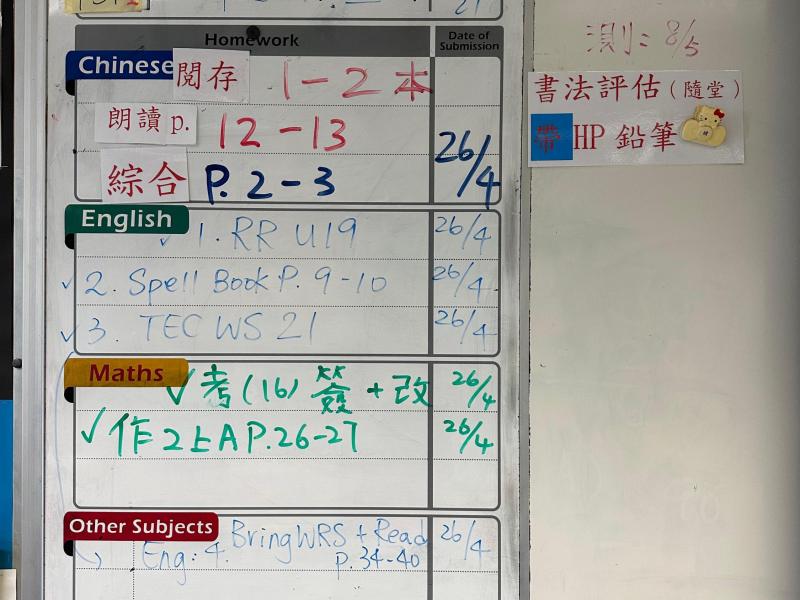 Homework
Date of Submission
Chinese 閱存 1-2本
朗讀 p. 12-13
綜合 P. 2-3 26/4
English
1. RR U19 26/4
2. Spell Book P. 9-10 26/4
3. TEC WS 21 26/4
Maths
考(16) 簽 + 改 26/4
作2上A P.26-27 26/4
Other Subjects
Eng: 4. Bring WRS + Read 26/4
P. 34-40
測: 8/5
書法評估(隨堂)
帶 HP 鉛筆